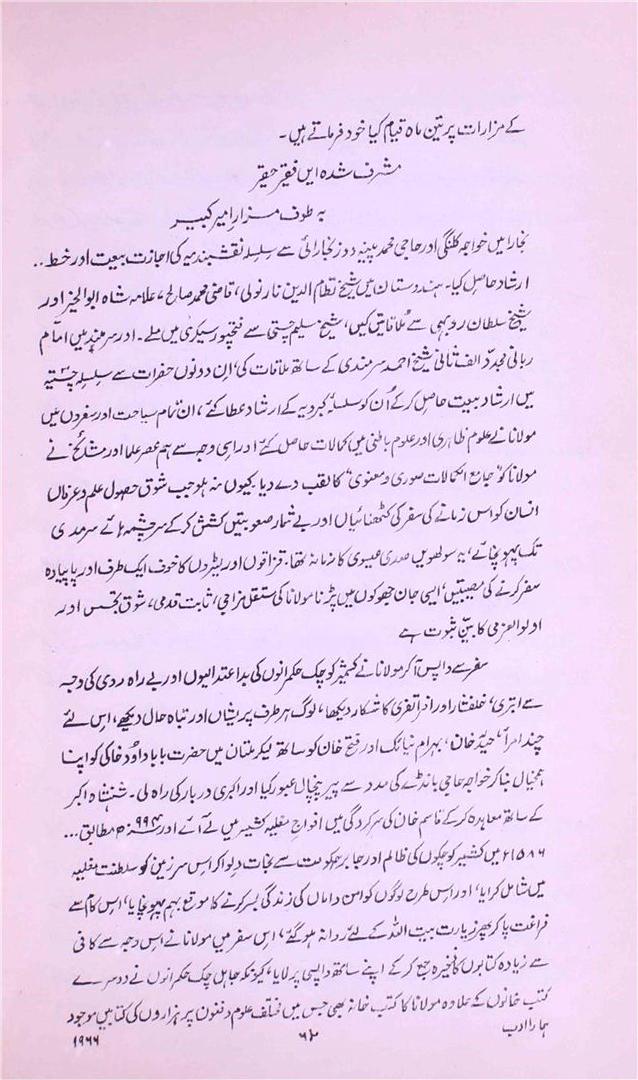 کے مزارات پر تین ماہ قیام کیا خود فرماتے ہیں۔
مشرف شدہ ایں فقیر حقیر
بہ طوف مزار امیر کبیر
بخارا میں خواجہ کلنگی اور حاجی محمد پینہ دوز بخارائی سے سلسلہ نقشبندیہ کی اجازت بیعت اور خط..
ارشاد حاصل کیا۔ ہندوستان میں شیخ نظام الدین نارنولی، قاضی محمد صالح، علامہ شاہ ابوالخیر اور
شیخ سلطان روپہی سے ملاقاتیں کیں، شیخ سلیم چشتی سے فتحپور سیکری میں ملے۔ اور سرہند میں امام
ربانی مجدد الف ثانی شیخ احمد سرہندی کے ساتھ ملاقات کی، ان دونوں حضرات سے سلسلہ چشتیہ
میں ارشاد بیعت حاصل کرکے اُن کو سلسلہ کبرویہ کے ارشاد عطا کئے، ان تمام سیاحت اور سفروں میں
مولانا نے علوم ظاہری اور علوم باطنی میں کمالات حاصل کئے اور اسی وجہ سے ہم عصر علما اور مشائخ نے
مولانا کو "جامع الکمالات صوری و معنوی" کا لقب دے دیا۔ کیوں نہ ہو جب شوق حصول علم و عرفاں
انسان کو اس زمانے کی سفر کی کٹھنائیاں اور بے شمار صعوبتیں کشش کرکے سرچشمہ ہائے سرمدی
تک پہونچائے، یہ سولھویں صدی عیسوی کا زمانہ تھا۔ قزاقوں اور لٹیروں کا خوف ایک طرف اور پاپیادہ
سفر کرنے کی مصیبتیں، ایسی جان جھوکوں میں پڑنا مولانا کی مستقل مزاجی، ثابت قدمی، شوق تجسس اور
اولوالعزمی کا بین ثبوت ہے
سفر سے واپس آکر مولانا نے کشمیر کو چک حکمرانوں کی بداعتدالیوں اور بے راہ روی کی وجہ
سے ابتری، خلفشار اور افراتفری کا شکار دیکھا، لوگ ہر طرف پریشاں اور تباہ حال دیکھے، اس لئے
چند امرا، حیدر خان، بہرام نیائک اور فتح خان کو ساتھ لیکر ملتان میں حضرت بابا داؤد خاکی کو اپنا
ہمخیال بنا کر خواجہ حاجی بانڈے کی مدد سے پیر پنچال عبور کیا اور اکبری دربار کی راہ لی۔ شنشاہ اکبر
کے ساتھ معاہدہ کرکے قاسم خان کی سرکردگی میں افواج مغلیہ کشمیر میں لے آئے اور سنہ ۹۹۴ھ مطابق...
۱۵۸۶ء میں کشمیر کو چکوں کی ظالم اور جابر حکومت سے نجات دلوا کر اس سرزمین کو سلطنت مغلیہ
میں شامل کرایا، اور اس طرح لوگوں کو امن و اماں کی زندگی بسر کرنے کا موقع بہم پہونچایا، اس کام سے
فراغت پا کر پھر زیارت بیت اللہ کے لئے روانہ ہو گئے، اس سفر میں مولانا نے اس وجہ سے کافی
سے زیادہ کتابوں کا ذخیرہ جمع کرکے اپنے ساتھ واپسی پر لایا، کیونکہ جاہل چک حکمرانوں نے دوسرے
کتب خانوں کے علاوہ مولانا کا کتب خانہ بھی جس میں مختلف علوم و فنون پر ہزاروں کی کتابیں موجود
ہمارا ادب
۱۹۶۶